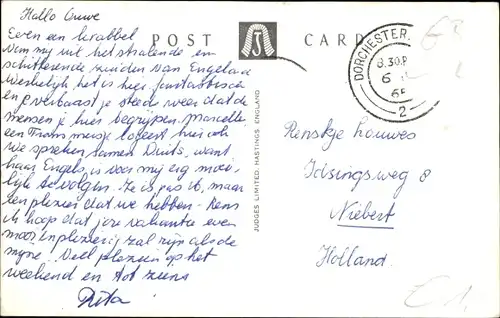 Hallo
POST CARD
Even een krabbel
van mij uit het stralende en
schitterende zuiden van Engeland
Werkelijk het is hier fantastisch
en verbaast je steeds weer dat de
mensen je hier begrijpen. Marcelle
een Frans meisje logeert hier ook
We spreken samen Duits, want
haar Engels is voor mij erg moei-
lijk te volgen. Ze is pas 16, maar
een plezier dat we hebben. Rens
ik hoop dat jouw vakantie even
mooi en plezierig zal zijn als de
mijne. Veel plezier op het
weekend en tot ziens
Rita
JUDGES LIMITED, HASTINGS, ENGLAND
DORCHESTER,
8.30 P
6
2
Renskje Louwes
Idsingsweg 8
Niebert
Holland